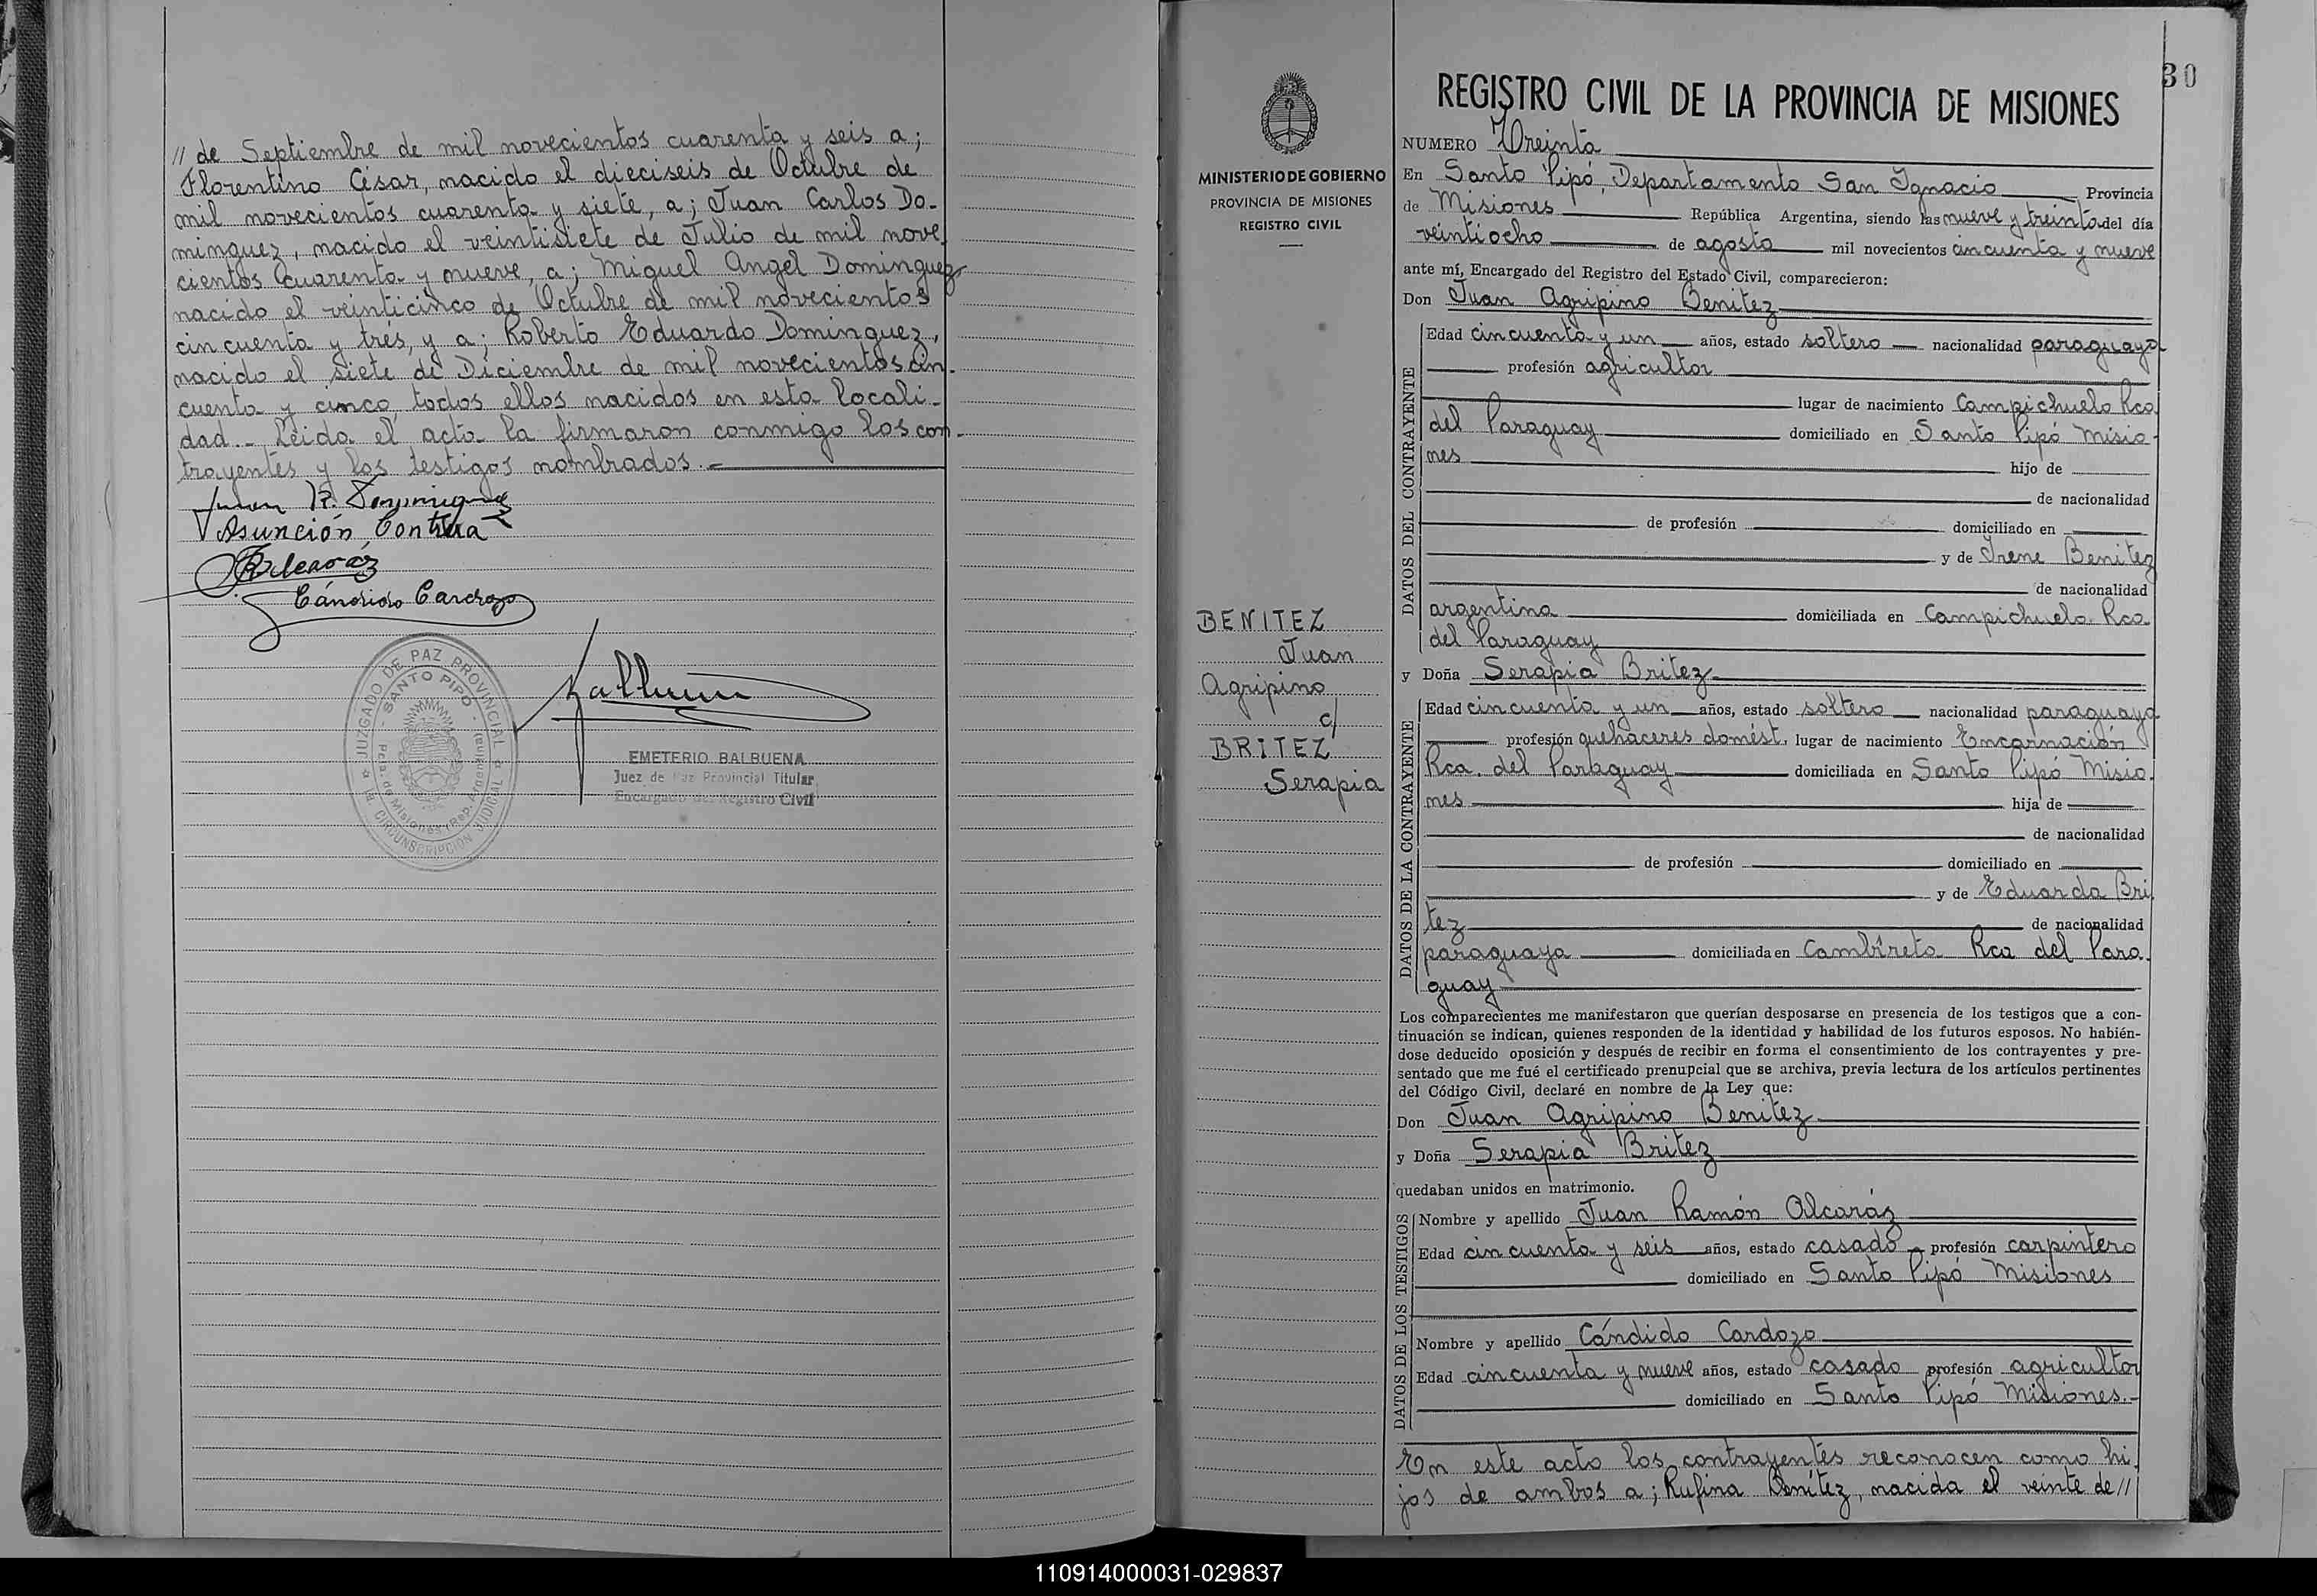 // de Septiembre de mil novecientos cuarenta y seis a;
Florentino César, nacido el dieciseis de Octubre de
mil novecientos cuarenta y siete, a; Juan Carlos Do-
minguez, nacido el veintisiete de Julio de mil nove
cientos cuarenta y nueve, a; Miguel Angel Dominguez
nacido el veinticinco de Octubre de mil novecientos
cincuenta y trés, y a; Roberto Eduardo Dominguez,
nacido el siete de Diciembre de mil novecientos cin-
cuenta y cinco, todos ellos nacidos en esta locali-
dad.- Leida el acta la firmaron conmigo los con-
trayentes y los testigos nombrados.-
Juan R. Dominguez
Asunción
JRAlcaráz
Cándido Cardozo
JUZGADO DE PAZ PROVINCIAL
- SANTO PIPO -
Pcia. de Misiones (Rep. Argentina)
CIRCUNSCRIPCION JUDICIAL
EMETERIO BALBUENA
Juez de Paz Provincial Titular
Encargado del Registro Civil
30
MINISTERIO DE GOBIERNO
PROVINCIA DE MISIONES
REGISTRO CIVIL
BENITEZ
Juan
Agripino
c/
BRITEZ
Serapia
REGISTRO CIVIL DE LA PROVINCIA DE MISIONES
NUMERO Treinta
En Santo Pipó, Departamento San Ignacio Provincia
de Misiones República Argentina, siendo las nueve y treinta del día
veintiocho de agosto mil novecientos cincuenta y nueve
ante mí, Encargado del Registro del Estado Civil, comparecieron:
Don Juan Agripino Benitez
DATOS DEL CONTRAYENTE
Edad cincuenta y un años, estado soltero nacionalidad paraguayo
profesión agricultor
lugar de nacimiento Campichuelo Rca
del Paraguay domiciliado en Santo Pipó Misio-
nes hijo de
de nacionalidad
de profesión domiciliado en
y de Irene Benitez
de nacionalidad
argentina domiciliada en Campichuelo Rca
del Paraguay
y Doña Serapia Britez
DATOS DE LA CONTRAYENTE
Edad cincuenta y un años, estado soltera nacionalidad paraguaya
profesión quehaceres domést. lugar de nacimiento Encarnación
Rca. del Paraguay domiciliada en Santo Pipó Misio-
nes hija de
de nacionalidad
de profesión domiciliado en
y de Eduarda Bri
tez de nacionalidad
paraguaya domiciliada en Cambíreta Rca del Para-
guay
Los comparecientes me manifestaron que querían desposarse en presencia de los testigos que a con-
tinuación se indican, quienes responden de la identidad y habilidad de los futuros esposos. No habién-
dose deducido oposición y después de recibir en forma el consentimiento de los contrayentes y pre-
sentado que me fué el certificado prenupcial que se archiva, previa lectura de los artículos pertinentes
del Código Civil, declaré en nombre de la Ley que:
Don Juan Agripino Benitez
y Doña Serapia Britez
quedaban unidos en matrimonio.
DATOS DE LOS TESTIGOS
Nombre y apellido Juan Ramón Alcaráz
Edad cincuenta y seis años, estado casado profesión carpintero
domiciliado en Santo Pipó Misiones
Nombre y apellido Cándido Cardozo
Edad cincuenta y nueve años, estado casado profesión agricultor
domiciliado en Santo Pipó Misiones.-
En este acto los contrayentes reconocen como hi-
jos de ambos a; Rufina Benítez, nacida el veinte de //
110914000031-029837